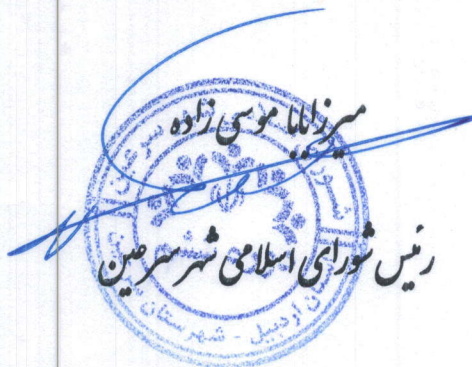 میرزابابا موسی زاده
رئیس شورای اسلامی شهر سرعین
اردبیل - شهرستان